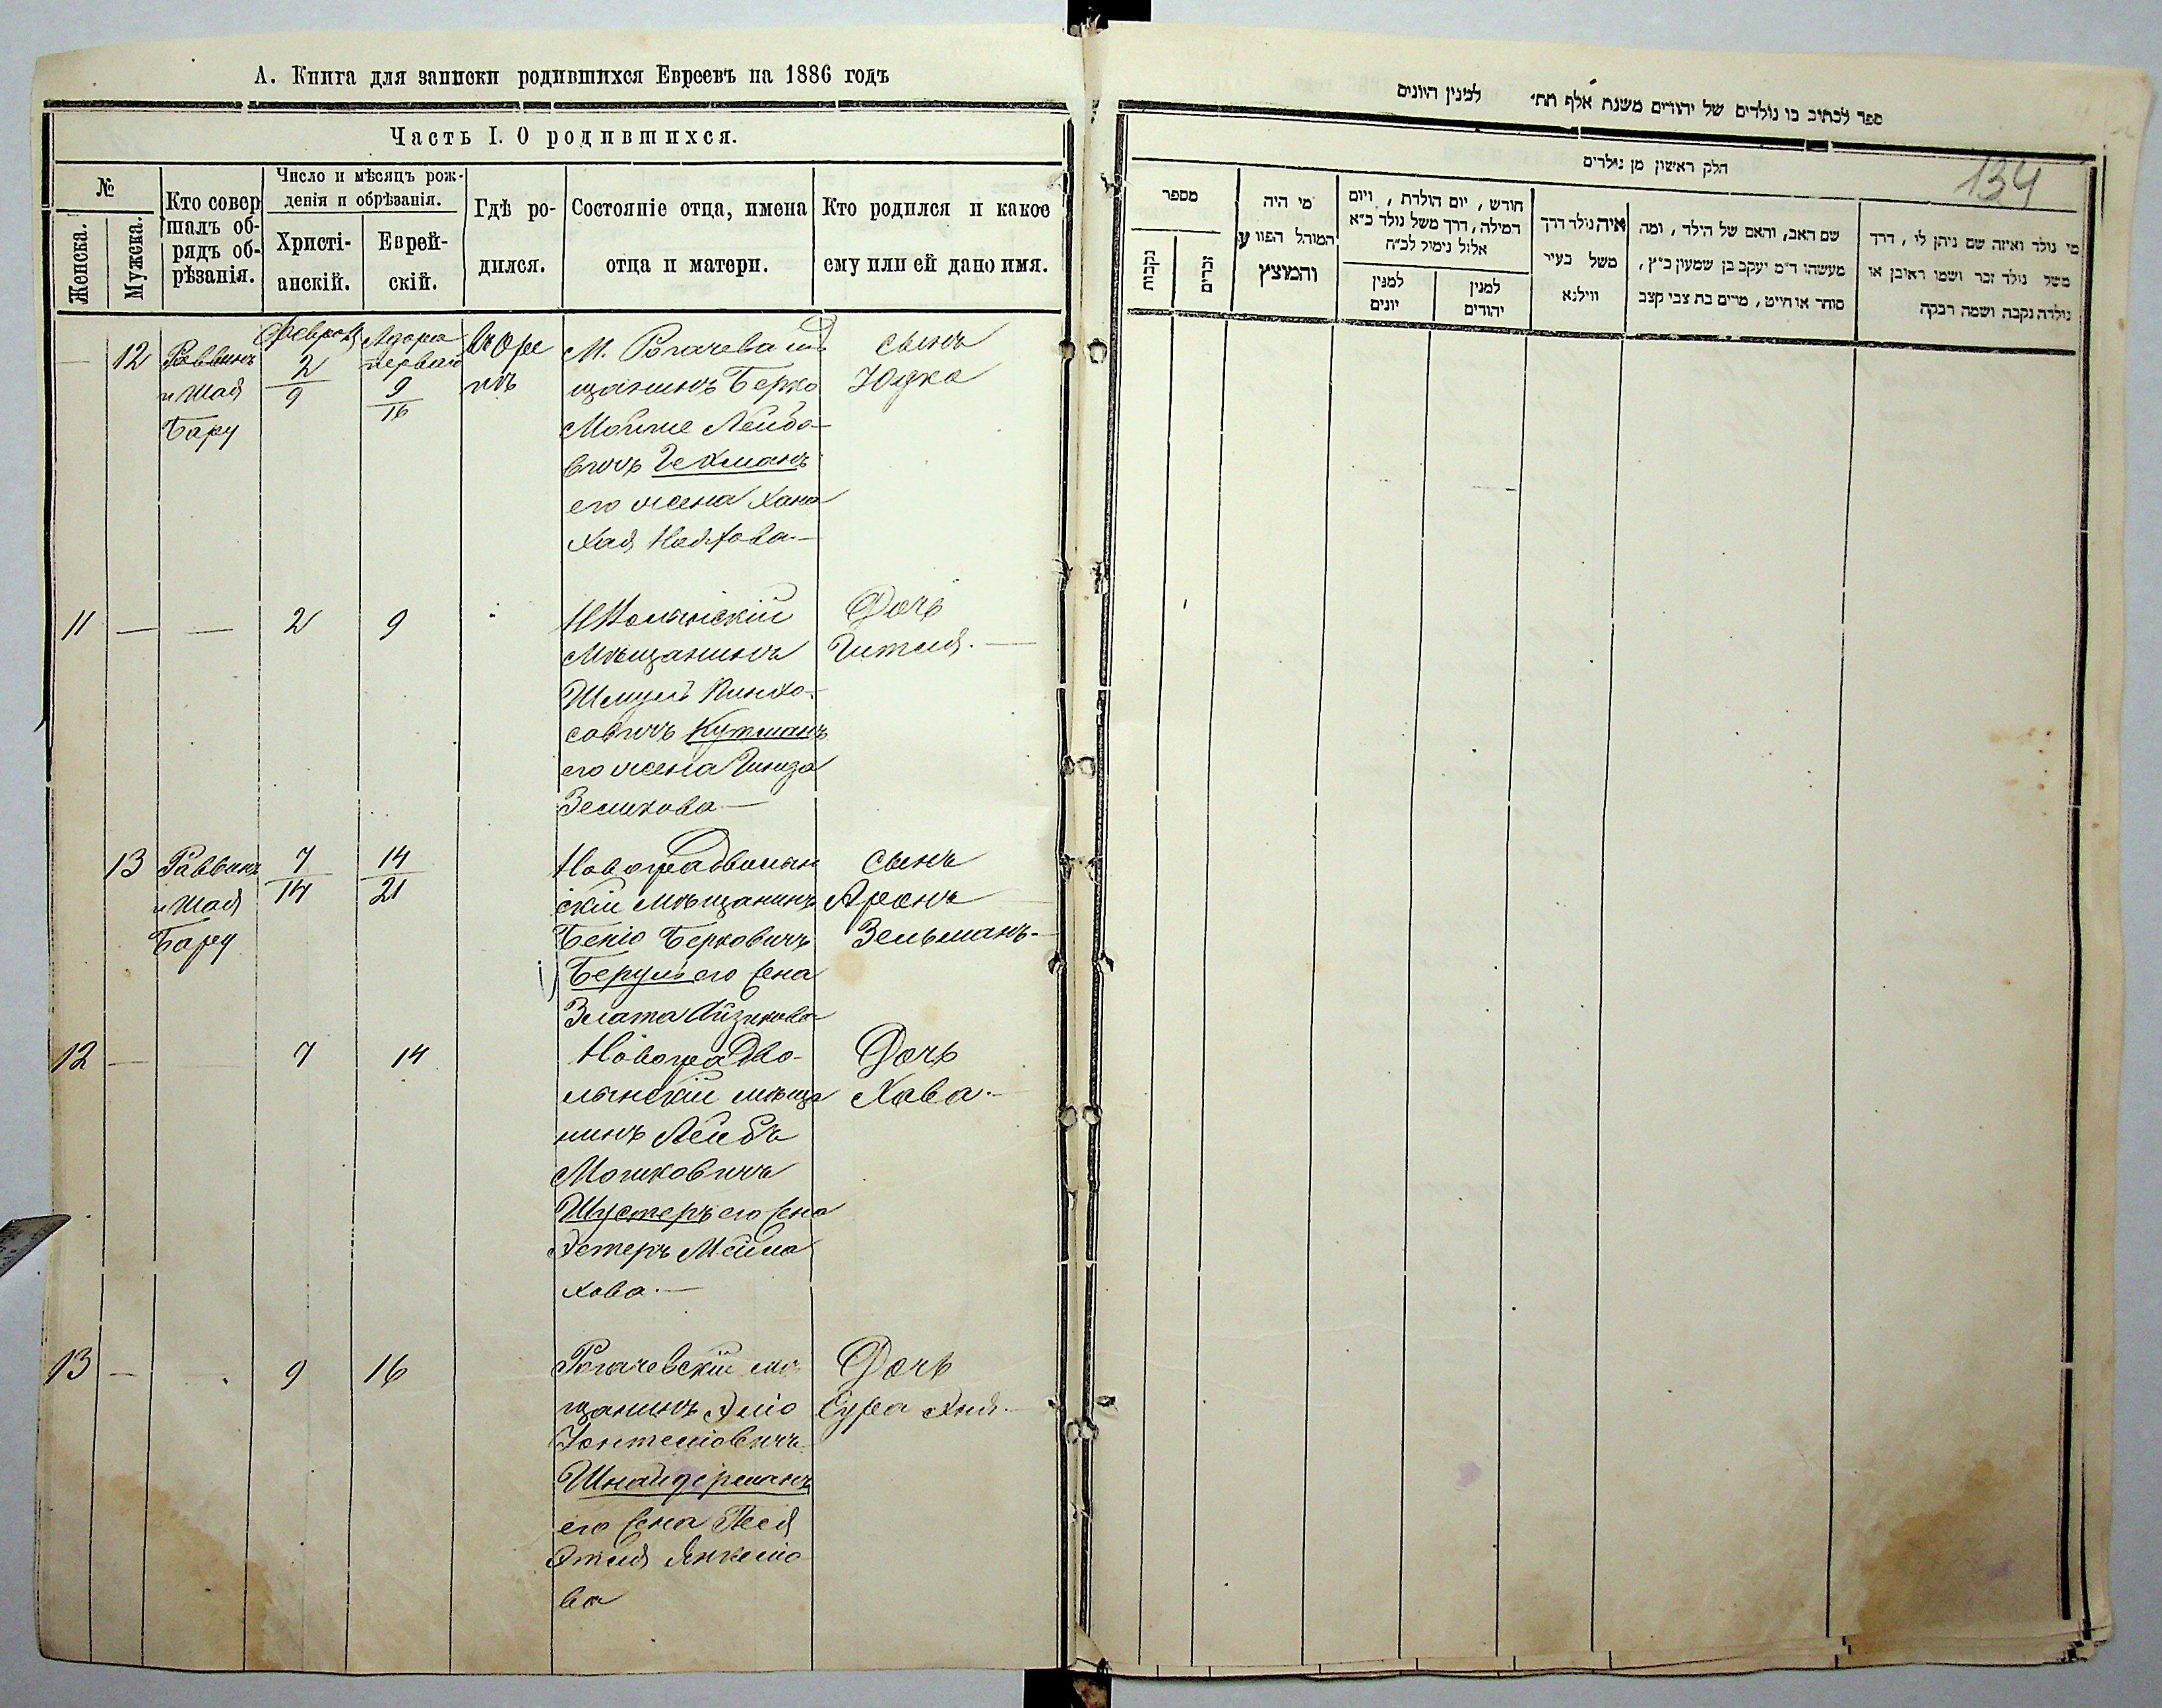 А. Книга для записки родившихся Евреевъ на 1886 годъ
Часть I. О родившихся.
№
Женска.
Мужска.
Кто совер
шалъ об-
рядъ об-
рѣзанія.
Число и мѣсяцъ рож-
денія и обрѣзанія.
Христі-
анскій.
Еврей-
скій.
Гдѣ ро-
дился.
Состояніе отца, имена
отца и матери.
Кто родился и какое
ему или ей дано имя.
12
Раввинъ
и Шая
Бару
2
9
Адора
первый
9
16
М. Рогачева
щанинъ Берко
Мойше Лейбо-
вичъ Гехманъ
его жена Хана
Хая
сынъ
Юдко
11 — — 2 9
Мѣщанинъ
Шмуль Пинхо-
совичъ Кутманъ
его жена Гинда
Зеликова —
Дочь
Гитля. —
13
Раввинъ
и Шая
Бару
7
14
14
21
Новоградволын
скій мѣщанинъ
Беніо Берковичъ
Беруль его жена
Злата Айзикова
сынъ
Аронъ
Зельманъ. —
12 — 7 14
Новоградво-
лынскій мѣща
нинъ Лейбъ
Мошковичъ
Шустеръ его жена
Эстеръ Мейла
хова. —
Дочь
Хава. —
13 — 9 16
Рогачевскій мѣ
щанинъ Эліо
Іонтеліовичъ
Шнайдерманъ
его жена Песя
Этля Янкеліо
ва
Дочь
Сура Хня. —
134
ספר לכתיב בו נולדים של יהודים משנת אלף תת׳ למנין היונים
חלק ראשון מן נולדים
מספר
נקבות
זכרים
מי היה
המוהל הפורע
והמוצץ
חודש, יום הולדת, ויום
המילה, דרך משל נולד כ״א
אלול נימול לכ״ח
למנין
יונים
למנין
יהודים
איה נולד דרך
משל בעיר
ווילנא
שם האב, והאם של הילד, ומה
מעשהו ד״מ יעקב בן שמעון כ״ץ,
סוחר או חייט, מרים בת צבי קצב
מי נולד ואיזה שם ניתן לו, דרך
משל נולד זכר ושמו ראובן או
נולדה נקבה ושמה רבקה